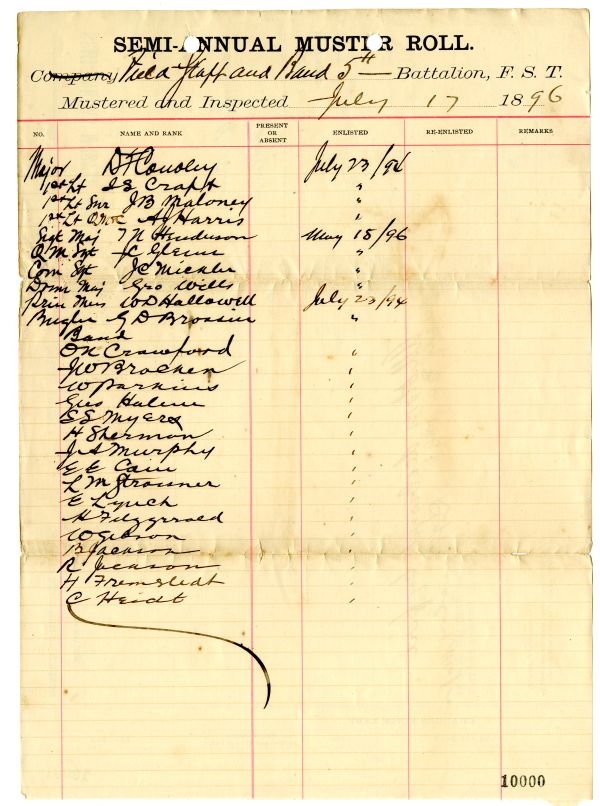 SEMI-ANNUAL MUSTER ROLL.
Company Field Staff and Band 5th Battalion, F. S. T.
Mustered and Inspected July 17 1896
NO. NAME AND RANK PRESENT OR ABSENT ENLISTED RE-ENLISTED REMARKS
Major July 23/94
1st Lt J E Craft "
1st Lt Sur J B Maloney "
1st Lt A J Harris "
Sgt Maj T N Henderson May 18/96
Q M Sgt J C Glenn "
Com Sgt J C Mickler "
Drum Maj Geo Wills "
Prin Mus W D Hallowell July 23/94
Bugler G D Brossier "
Band
O N Crawford "
J W Bracken "
W Parkins "
Gus "
E E Myers "
H Shermon "
J A Murphy "
E E Cain "
L M Strassner "
E Lynch "
H Fitzgerrald "
W Gibson "
B Jackson "
R Jackson "
H Fremstedt "
C Heidt "
10000